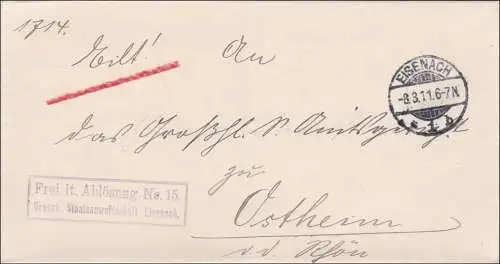 1714.
Eilt!
An
EISENACH
-8.3.11.6-7N.
* 1 b
das Großhl. S. Amtsgericht
zu
Frei lt. Ablösung Nr. 15.
Grossh. Staatsanwaltschaft Eisenach.
Ostheim
v. d. Rhön